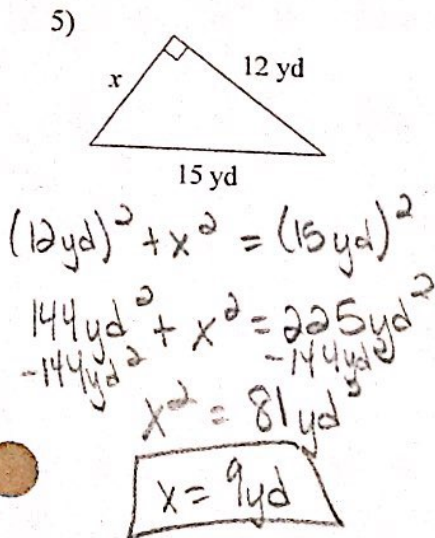 5)
x 12 yd
15 yd
(12yd)² + x² = (15yd)²
144yd² + x² = 225yd²
-144yd² -144yd²
x² = 81yd²
x = 9yd